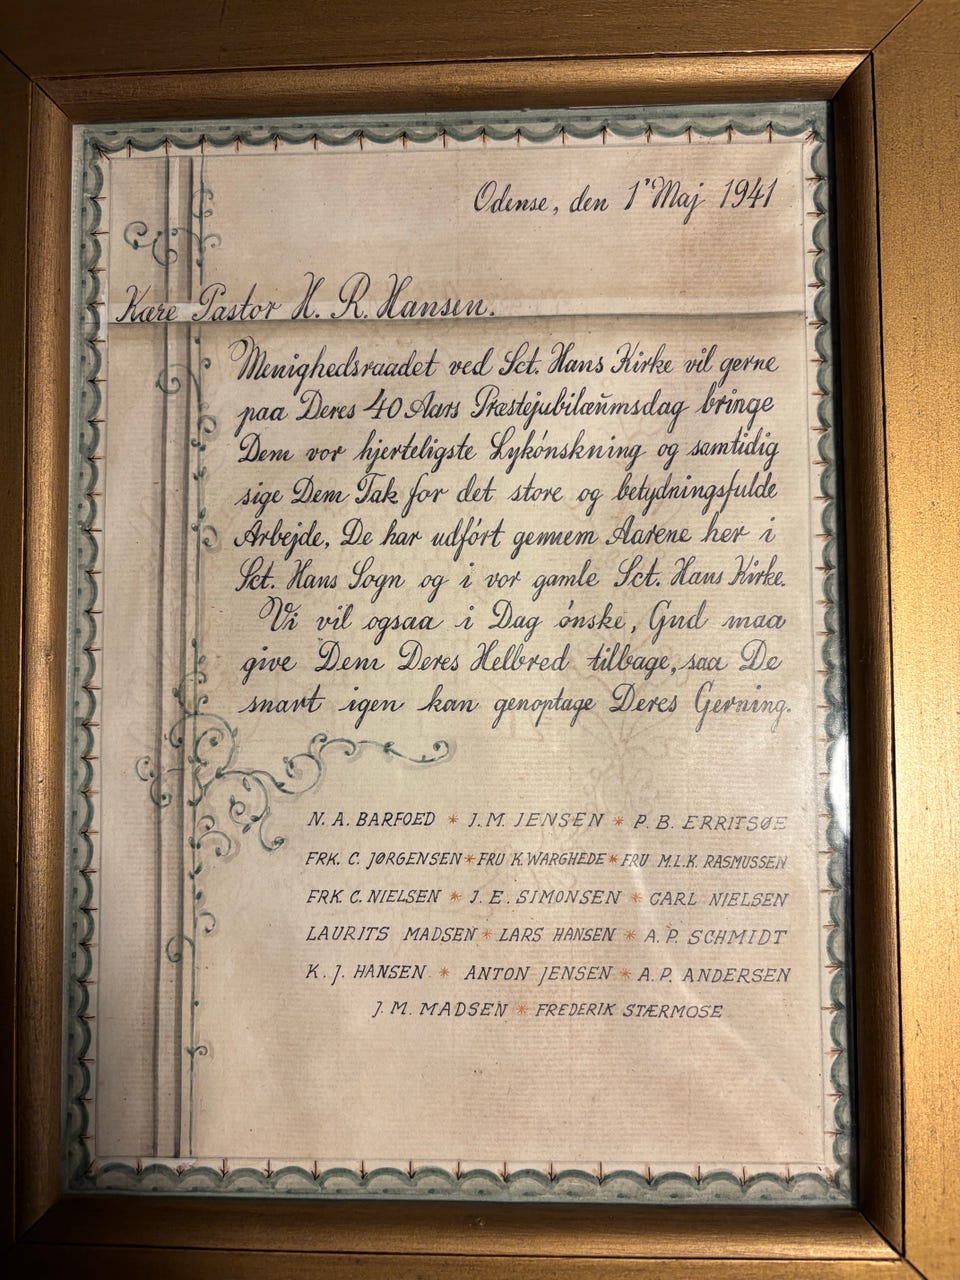 Odense, den 1' Maj 1941
Kære Pastor H. R. Hansen.
Menighedsraadet ved Sct. Hans Kirke vil gerne
paa Deres 40 Aars Præstejubilæumsdag bringe
Dem vor hjerteligste Lykónskning og samtidig
sige Dem Tak for det store og betydningsfulde
Arbejde, De har udfórt gennem Aarene her i
Sct. Hans Sogn og i vor gamle Sct. Hans Kirke.
Vi vil ogsaa i Dag ónske, Gud maa
give Dem Deres Helbred tilbage, saa De
snart igen kan genoptage Deres Gerning.
N. A. BARFOED * J. M. JENSEN * P. B. ERRITSØE
FRK. C. JØRGENSEN * FRU K. WARGHEDE * FRU M.L.K. RASMUSSEN
FRK. C. NIELSEN * J. E. SIMONSEN * CARL NIELSEN
LAURITS MADSEN * LARS HANSEN * A. P. SCHMIDT
K. J. HANSEN * ANTON JENSEN * A. P. ANDERSEN
J. M. MADSEN * FREDERIK STÆRMOSE